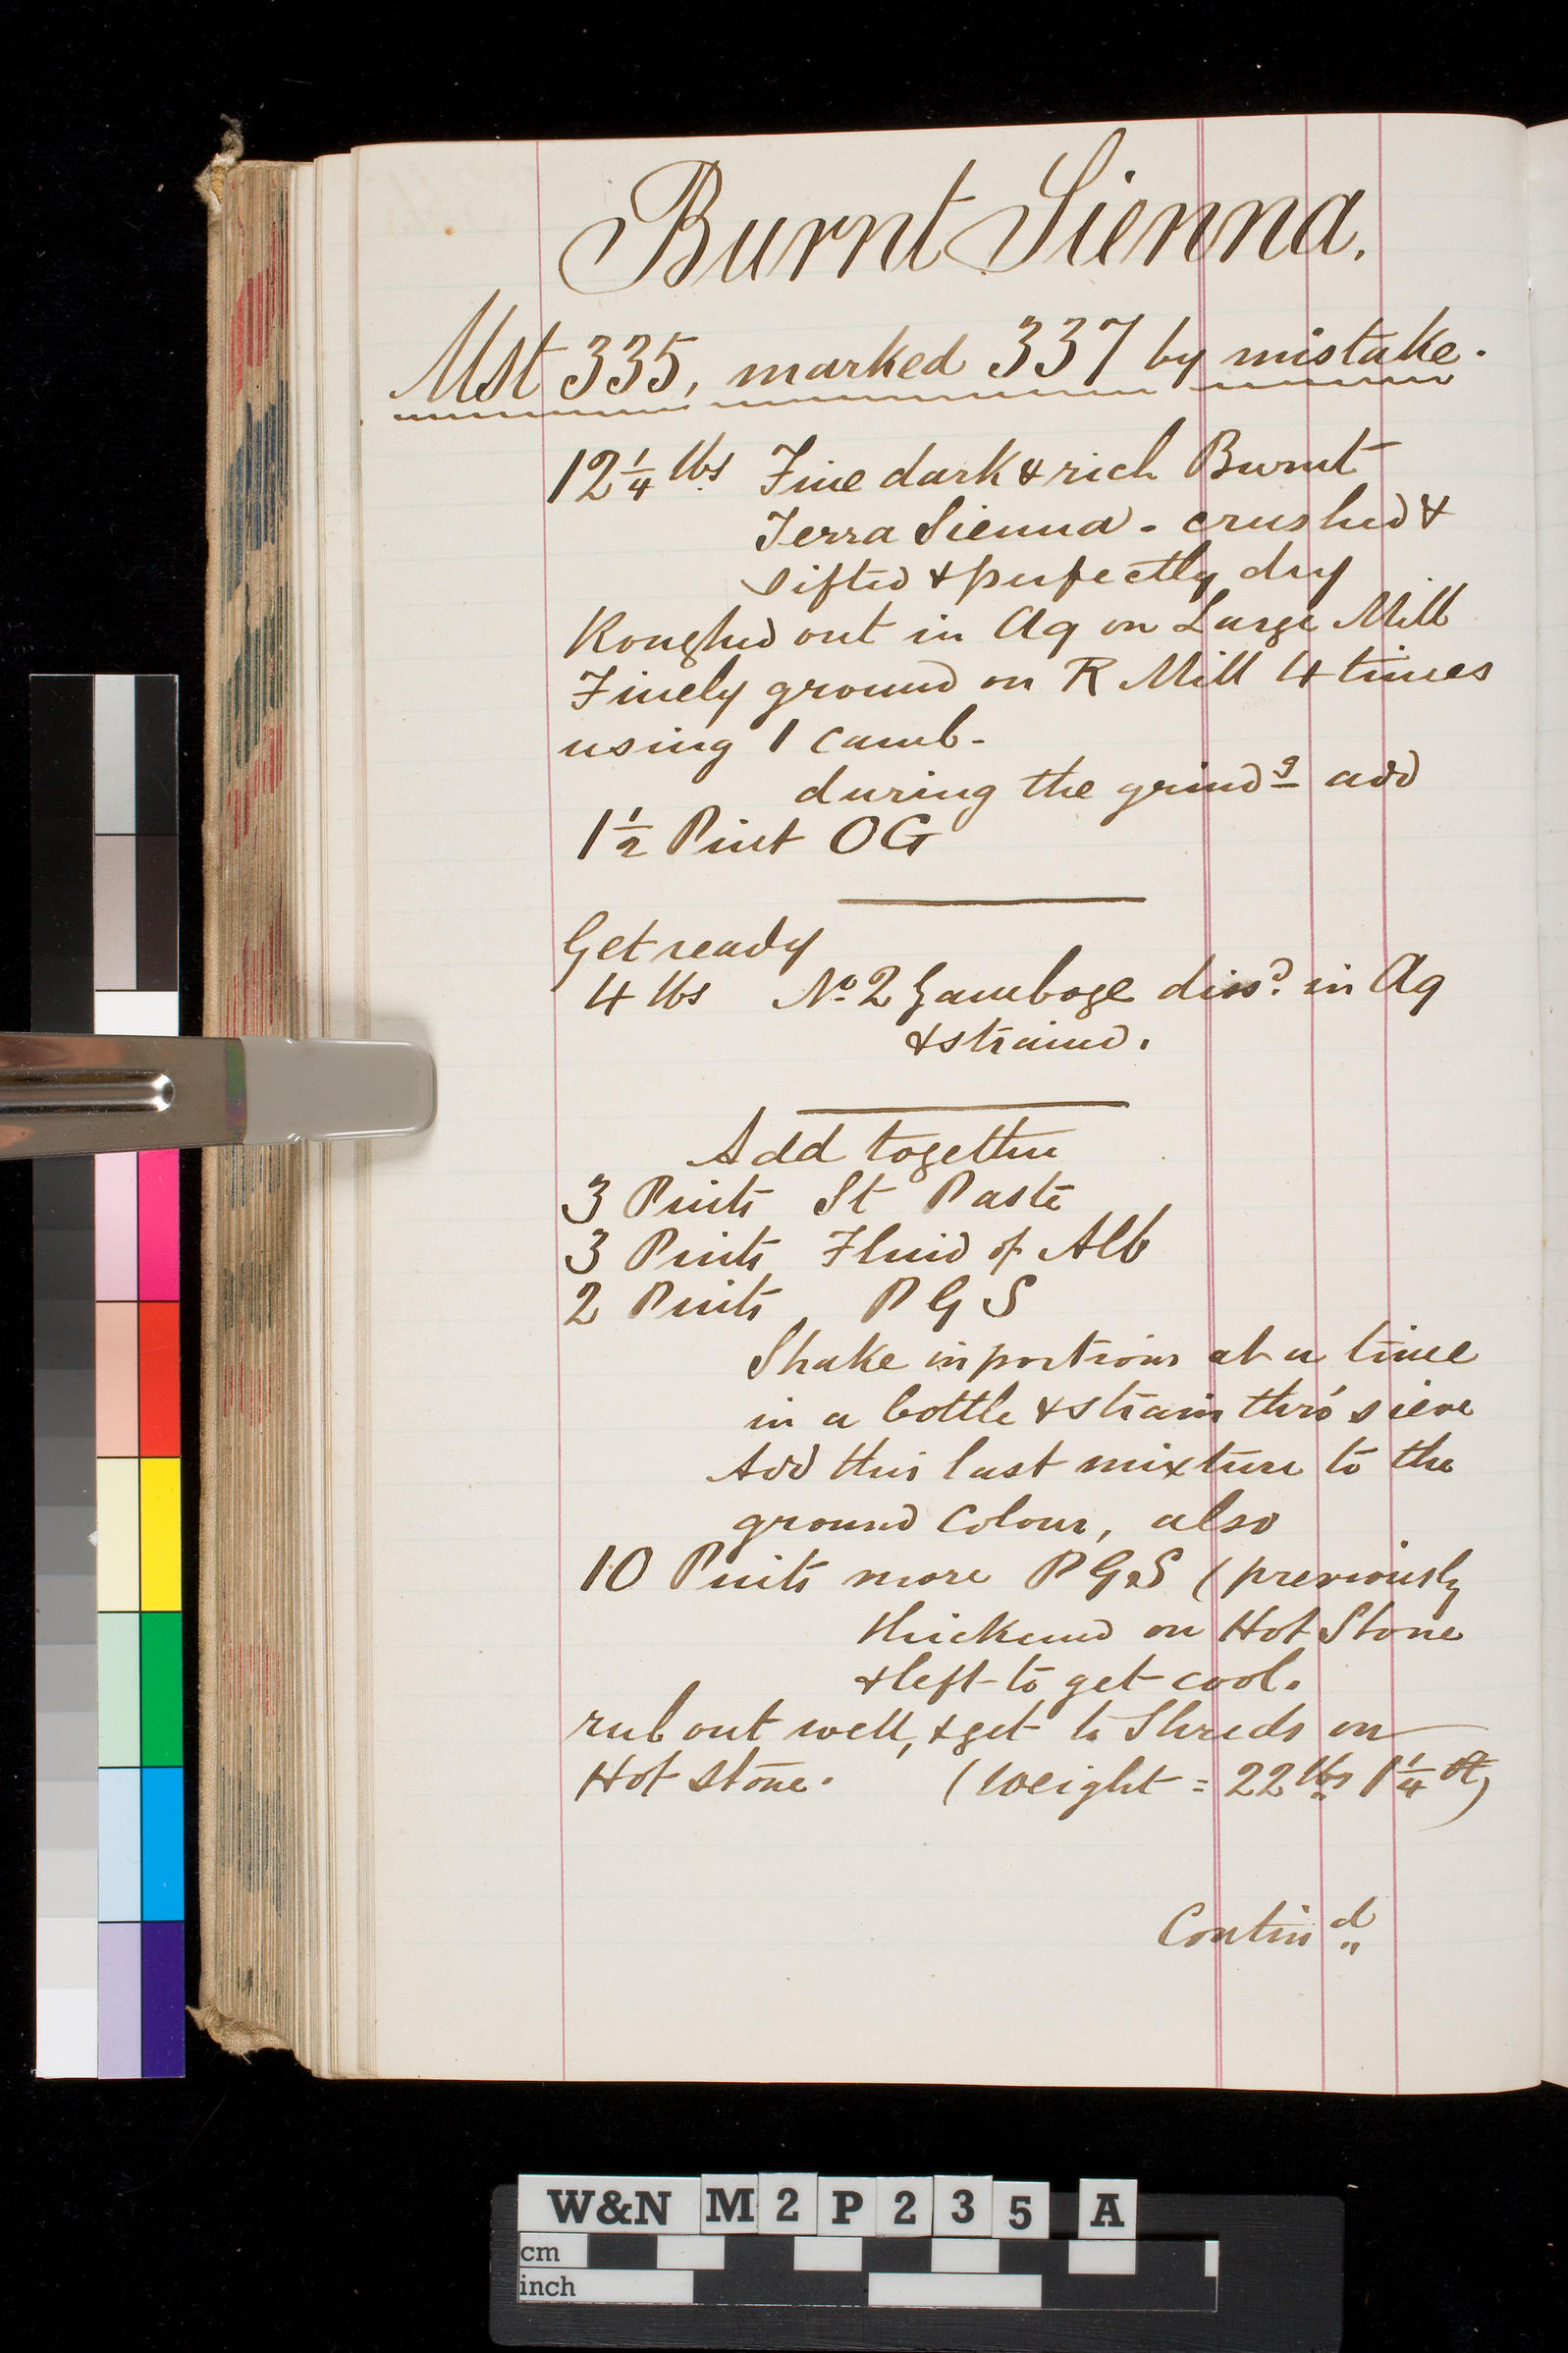 Burnt Sienna.
Mst 335, marked 337 by mistake.
12 1/4 lbs Fine dark & rich Burnt
Terra Sienna - crushed &
sifted & perfectly dry
Roughed out in Aq on Large Mill
Finely ground on R Mill 4 times
using 1 camb-
during the grindg add
1 1/2 Pint OG
Get ready
4 lbs No 2 Gamboge dissd. in Aq
& strained.
Add together
3 Pints St Paste
3 Pints Fluid of Alb
2 Pints P G S
Shake in portions at a time
in a bottle & strain thro' sieve
Add this last mixture to the
ground colour, also
10 Pints more P G S (previously
thickened on Hot Stone
& left to get cool.
rub out well, & get to Shreds on
Hot Stone. (Weight = 22 lbs 1 1/4
Contind
W&N M2P235 A
cm
inch